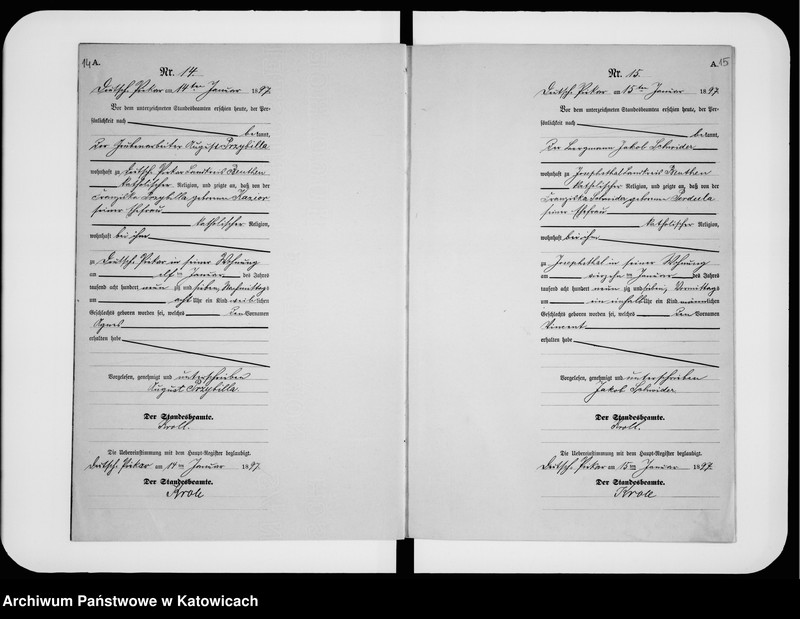 14 A.
Nr. 14.
Deutsch Piekar am 14ten Januar 1897.
Vor dem unterzeichneten Standesbeamten erschien heute, der Per-
sönlichkeit nach
bekannt,
Der Grubenarbeiter August Przybilla
wohnhaft zu Deutsch Piekar Landkreis Beuthen
katholischer Religion, und zeigte an, daß von der
Franziska Przybilla geborenen
seiner Ehefrau
katholischer Religion,
wohnhaft bei ihm
zu Deutsch Piekar in seiner Wohnung
am elften Januar des Jahres
tausend acht hundert neunzig und sieben, Nachmittags
um acht Uhr ein Kind weiblichen
Geschlechts geboren worden sei, welches den Vornamen
Agnes
erhalten habe
Vorgelesen, genehmigt und unterschrieben
August Przybilla
Der Standesbeamte.
Kroll.
Die Uebereinstimmung mit dem Haupt-Register beglaubigt.
Deutsch Piekar am 14ten Januar 1897.
Der Standesbeamte.
Kroll
A. 15
Nr. 15.
Deutsch Piekar am 15ten Januar 1897.
Vor dem unterzeichneten Standesbeamten erschien heute, der Per-
sönlichkeit nach
bekannt,
Der Bergmann Jakob Schneider
wohnhaft zu Josephsthal Landkreis Beuthen
katholischer Religion, und zeigte an, daß von der
Franziska geborenen
seiner Ehefrau
katholischer Religion,
wohnhaft bei ihm
zu Josephsthal in seiner Wohnung
am ten Januar des Jahres
tausend acht hundert neunzig und sieben, Vormittags
um ein einhalb Uhr ein Kind männlichen
Geschlechts geboren worden sei, welches den Vornamen
Vincent
erhalten habe
Vorgelesen, genehmigt und unterschrieben
Jakob Schneider
Der Standesbeamte.
Kroll.
Die Uebereinstimmung mit dem Haupt-Register beglaubigt.
Deutsch Piekar am 15ten Januar 1897.
Der Standesbeamte.
Kroll
Archiwum Państwowe w Katowicach